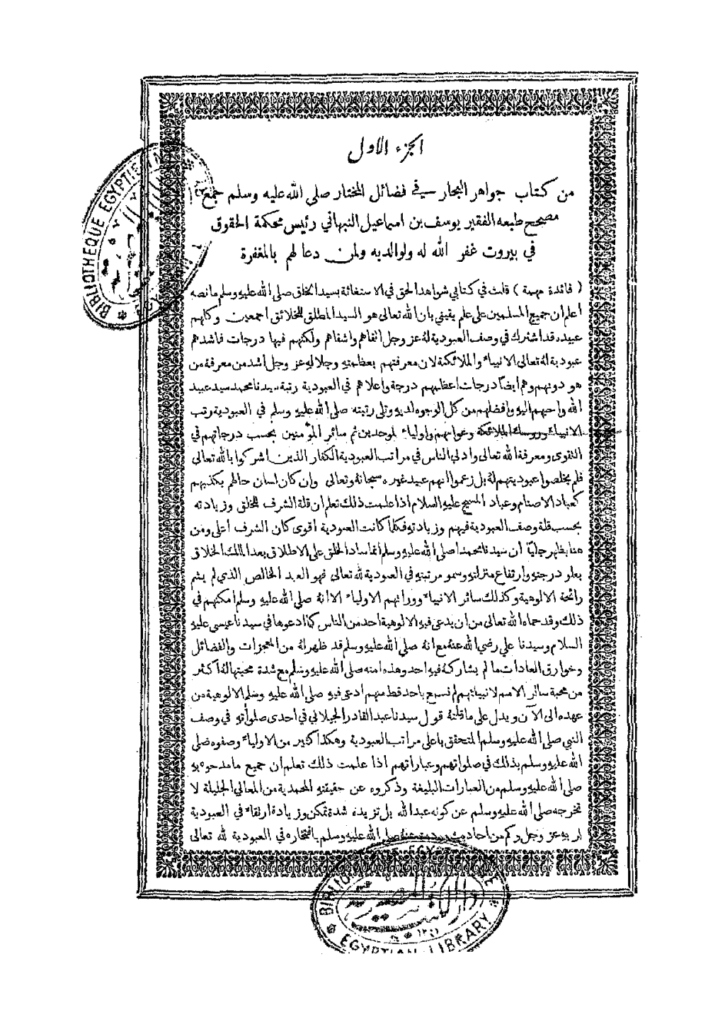 الجزء الاول
من كتاب جواهر البحار في فضائل المختار صلى الله عليه وسلم جمع
مصحح طبعه الفقير يوسف بن اسماعيل النبهاني رئيس محكمة الحقوق
في بيروت غفر الله له ولوالديه ولمن دعا لهم بالمغفرة
( فائدة مهمة ) قلت في كتابي شواهد الحق في الاستغاثة بسيد الخلق صلى الله عليه وسلم ما نصه
اعلم ان جميع المسلمين على علم يقيني بان الله تعالى هو السيد المطلق للخلائق اجمعين وكلهم
عبيده قد اشترك في وصف العبودية له عز وجل اتقاهم واشقاهم ولكنهم فيها درجات فاشدهم
عبودية له تعالى الانبياء والملائكة لان معرفتهم بعظمته وجلاله عز وجل اشد من معرفة من
هو دونهم وهم ايضا درجات اعظمهم درجة واعلاهم في العبودية رتبة سيدنا محمد سيد عبيد
الله واحبهم اليه وافضلهم من كل الوجوه لديه وتلى رتبته صلى الله عليه وسلم في العبودية رتب
الانبياء ورؤساء الملائكة وعوامهم واولياء الموحدين ثم سائر المؤمنين بحسب درجاتهم في
التقوى ومعرفة الله تعالى وادنى الناس في مراتب العبودية الكفار الذين اشركوا بالله تعالى
فلم يخلصوا عبوديتهم له بل زعموا انهم عبيد غيره سبحانه وتعالى وان كان لسان حالهم يكذبهم
كعباد الاصنام وعباد المسيح عليه السلام اذا علمت ذلك تعلم ان قلة الشرف للخلق وزيادته
بحسب قلة وصف العبودية فيهم وزيادته فكلما كانت العبودية اقوى كان الشرف اعلى ومن
هنا يظهر جليا أن سيدنا محمدا صلى الله عليه وسلم انما ساد الخلق على الاطلاق بعد المالك الخلاق
بعلو درجته وارتفاع منزلته وسمو مرتبته في العبودية لله تعالى فهو العبد الخالص الذي لم يشم
رائحة الالوهية وكذلك سائر الانبياء وورثتهم الاولياء الا انه صلى الله عليه وسلم امكنهم في
ذلك وقد حماه الله تعالى من ان يدعى فيه الالوهية احد من الناس كما ادعوها في سيدنا عيسى عليه
السلام وسيدنا علي رضي الله عنه مع انه صلى الله عليه وسلم قد ظهر له من المعجزات والفضائل
وخوارق العادات ما لم يشاركه فيه احد وهذه امته صلى الله عليه وسلم مع شدة محبتها له أكثر
من محبة سائر الامم لانبيائهم لم نسمع باحد قط منهم ادعى فيه صلى الله عليه وسلم الالوهية من
عهده الى الآن ويدل على ما قلته قول سيدنا عبد القادر الجيلاني في احدى صلواته في وصف
النبي صلى الله عليه وسلم المتحقق باعلى مراتب العبودية وهكذا كثير من الاولياء وصفوه صلى
الله عليه وسلم بذلك في صلواتهم وعباراتهم اذا علمت ذلك تعلم ان جميع ما مدحوه به
صلى الله عليه وسلم من العبارات البليغة وذكروه عن حقيقته المحمدية من المعالي الجليلة لا
تخرجه صلى الله عليه وسلم عن كونه عبد الله بل تزيده شدة تمكن وزيادة ارتقاء في العبودية
لربه عز وجل وكم من احاديث عنه صلى الله عليه وسلم بافتخاره في العبودية لله تعالى
BIBLIOTHEQUE EGYPTIENNE
EGYPTIAN LIBRARY